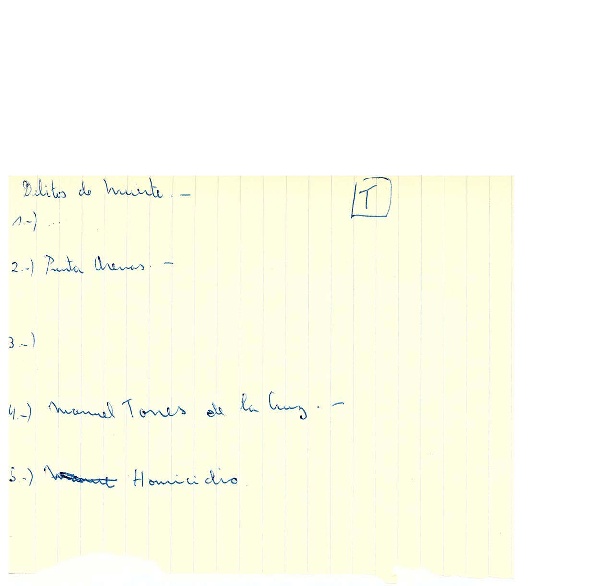 Delitos de Muerte. —
T
1.-) ..
2.-) Punta Arenas. —
3.-)
4.-) Manuel Torres de la Cruz. —
5.-) Homicidio